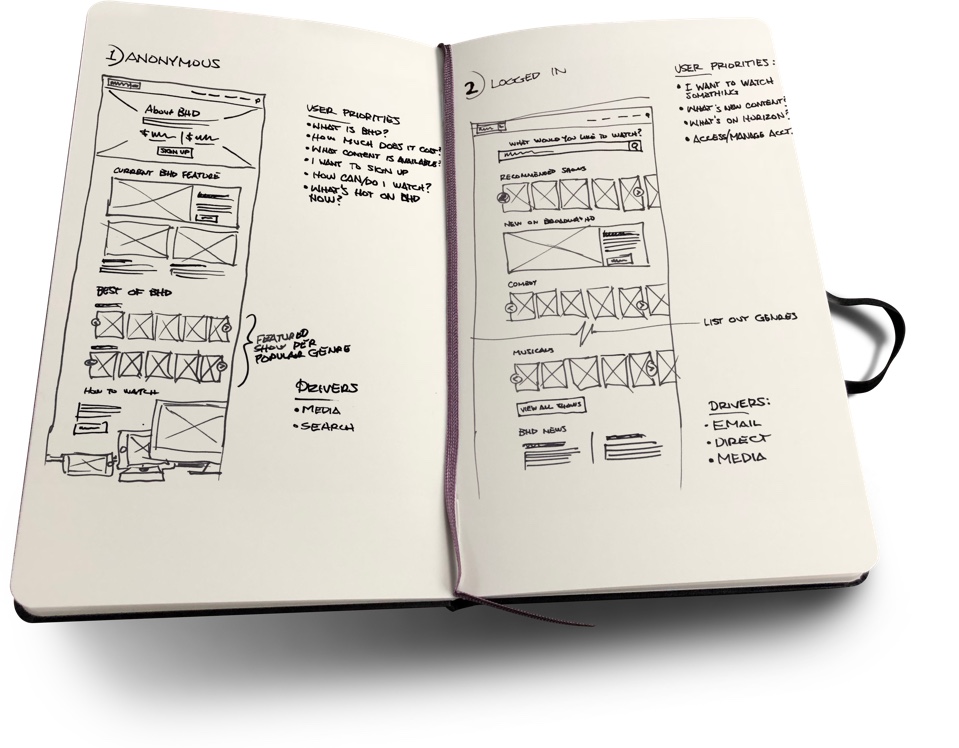 1) ANONYMOUS
About BHD
$ | $
SIGN UP
CURRENT BHD FEATURE
BEST OF BHD
HOW TO WATCH
USER PRIORITIES
• WHAT IS BHD?
• HOW MUCH DOES IT COST?
• WHAT CONTENT IS AVAILABLE?
• I WANT TO SIGN UP
• HOW CAN/DO I WATCH?
• WHAT'S HOT ON BHD
NOW?
FEATURED
SHOW PER
POPULAR GENRE
DRIVERS
• MEDIA
• SEARCH
2) LOGGED IN
WHAT WOULD YOU LIKE TO WATCH?
RECOMMENDED SHOWS
NEW ON BROADWAY HD
COMEDY
MUSICALS
VIEW ALL SHOWS
BHD NEWS
USER PRIORITIES:
• I WANT TO WATCH
SOMETHING
• WHAT'S NEW CONTENT?
• WHAT'S ON HORIZON?
• ACCESS/MANAGE ACCT.
LIST OUT GENRES
DRIVERS:
• EMAIL
• DIRECT
• MEDIA